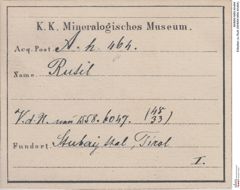 K. K. Mineralogisches Museum.
Acq. Post A. h. 464.
Name Rutil
V. d. N. 1558. 6047. (48/33)
Fundort Stubaythal, Tirol
I.